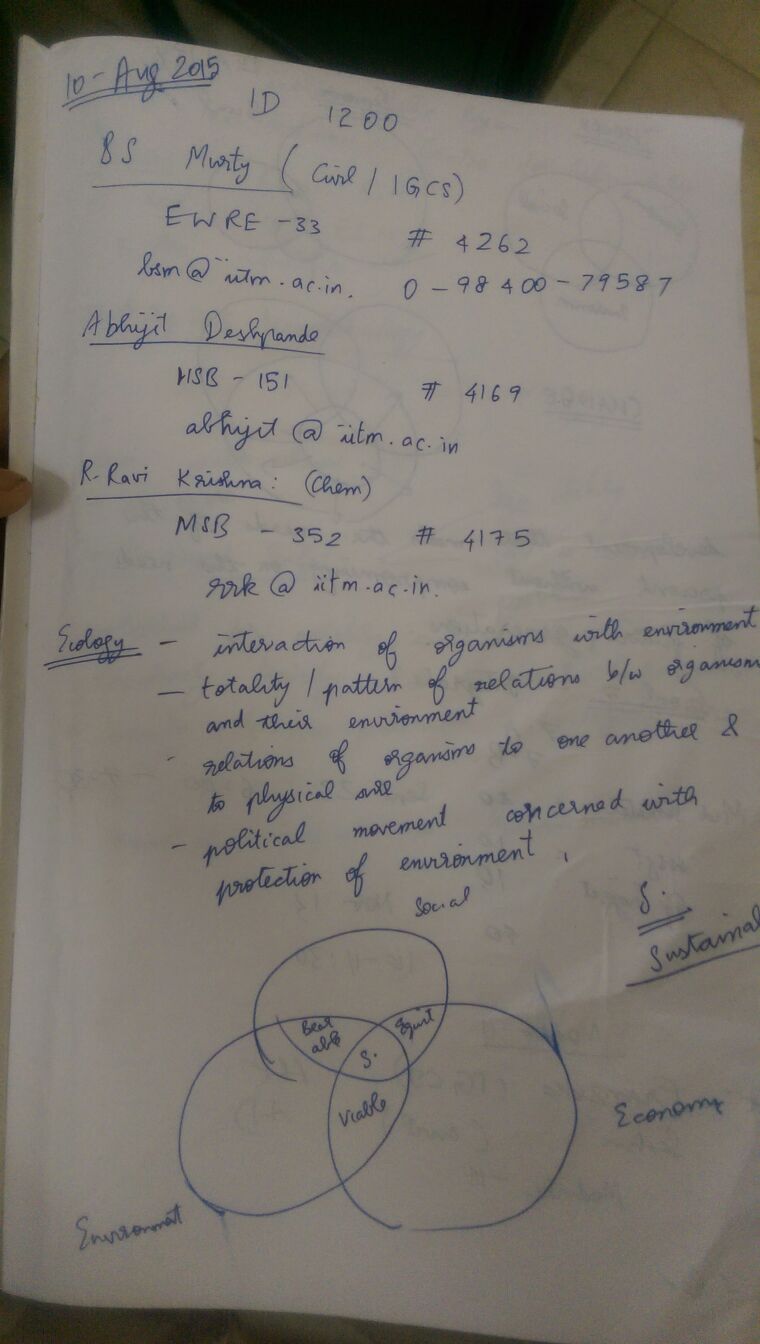 10-Aug 2015
ID 1200
BS Murty (Civil / IGCS)
EWRE -33 # 4262
bsm@iitm.ac.in. 0-98400-79587
Abhijit Deshpande
HSB - 151 # 4169
abhijit@iitm.ac.in
R. Ravi Krishna: (Chem)
MSB - 352 # 4175
rrk@iitm.ac.in.
Ecology - interaction of organisms with environment
- totality / pattern of relations b/w organism
and their environment
- relations of organisms to one another &
to physical
- political movement concerned with
protection of environment.
Social
S.
Sustainal
Bear
able
Equit
S.
Viable
Economy
Environmat